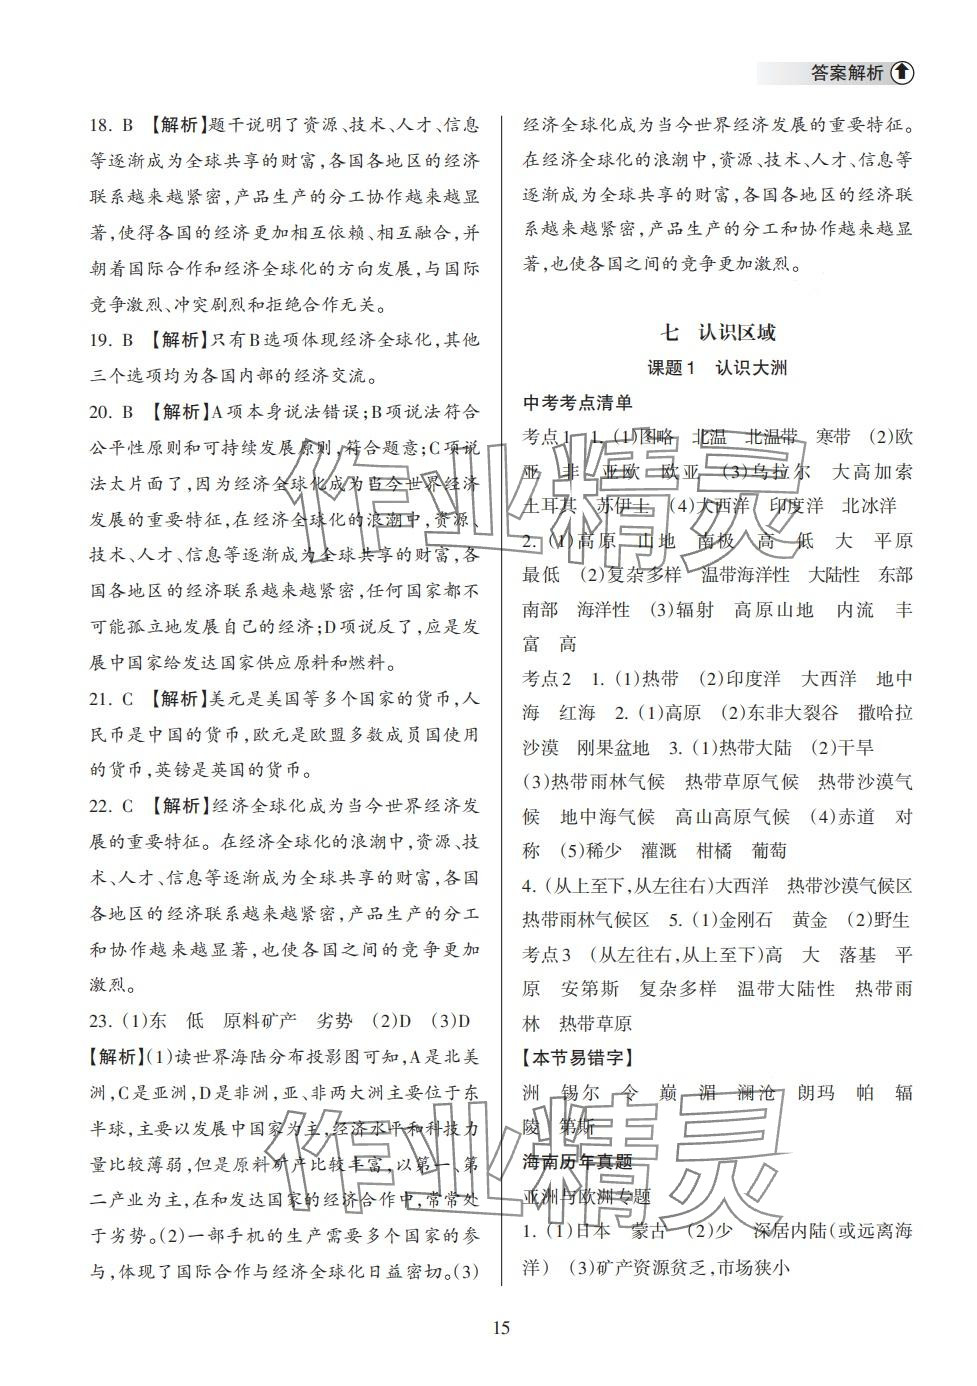 答案解析
18. B 【解析】题干说明了资源、技术、人才、信息
等逐渐成为全球共享的财富,各国各地区的经济
联系越来越紧密,产品生产的分工协作越来越显
著,使得各国的经济更加相互依赖、相互融合,并
朝着国际合作和经济全球化的方向发展,与国际
竞争激烈、冲突剧烈和拒绝合作无关。
19. B 【解析】只有B选项体现经济全球化,其他
三个选项均为各国内部的经济交流。
20. B 【解析】A项本身说法错误;B项说法符合
公平性原则和可持续发展原则,符合题意;C项说
法太片面了,因为经济全球化成为当今世界经济
发展的重要特征,在经济全球化的浪潮中,资源、
技术、人才、信息等逐渐成为全球共享的财富,各
国各地区的经济联系越来越紧密,任何国家都不
可能孤立地发展自己的经济;D项说反了,应是发
展中国家给发达国家供应原料和燃料。
21. C 【解析】美元是美国等多个国家的货币,人
民币是中国的货币,欧元是欧盟多数成员国使用
的货币,英镑是英国的货币。
22. C 【解析】经济全球化成为当今世界经济发
展的重要特征。在经济全球化的浪潮中,资源、技
术、人才、信息等逐渐成为全球共享的财富,各国
各地区的经济联系越来越紧密,产品生产的分工
和协作越来越显著,也使各国之间的竞争更加
激烈。
23. (1)东 低 原料矿产 劣势 (2)D (3)D
【解析】(1)读世界海陆分布投影图可知,A是北美
洲,C是亚洲,D是非洲,亚、非两大洲主要位于东
半球,主要以发展中国家为主,经济水平和科技力
量比较薄弱,但是原料矿产比较丰富,以第一、第
二产业为主,在和发达国家的经济合作中,常常处
于劣势。(2)一部手机的生产需要多个国家的参
与,体现了国际合作与经济全球化日益密切。(3)
经济全球化成为当今世界经济发展的重要特征。
在经济全球化的浪潮中,资源、技术、人才、信息等
逐渐成为全球共享的财富,各国各地区的经济联
系越来越紧密,产品生产的分工和协作越来越显
著,也使各国之间的竞争更加激烈。
七 认识区域
课题1 认识大洲
中考考点清单
考点1 1. (1)图略 北温 北温带 寒带 (2)欧
亚 非 亚欧 欧亚 (3)乌拉尔 大高加索
土耳其 苏伊士 (4)大西洋 印度洋 北冰洋
2. (1)高原 山地 南极 高 低 大 平原
最低 (2)复杂多样 温带海洋性 大陆性 东部
南部 海洋性 (3)辐射 高原山地 内流 丰
富 高
考点2 1. (1)热带 (2)印度洋 大西洋 地中
海 红海 2. (1)高原 (2)东非大裂谷 撒哈拉
沙漠 刚果盆地 3. (1)热带大陆 (2)干旱
(3)热带雨林气候 热带草原气候 热带沙漠气
候 地中海气候 高山高原气候 (4)赤道 对
称 (5)稀少 灌溉 柑橘 葡萄
4. (从上至下,从左往右)大西洋 热带沙漠气候区
热带雨林气候区 5. (1)金刚石 黄金 (2)野生
考点3 (从左往右,从上至下)高 大 落基 平
原 安第斯 复杂多样 温带大陆性 热带雨
林 热带草原
【本节易错字】
洲 锡尔 令 巅 湄 澜沧 朗玛 帕 辐
陵 第斯
海南历年真题
亚洲与欧洲专题
1. (1)日本 蒙古 (2)少 深居内陆(或远离海
洋) (3)矿产资源贫乏,市场狭小
15
作业精灵
作业精灵